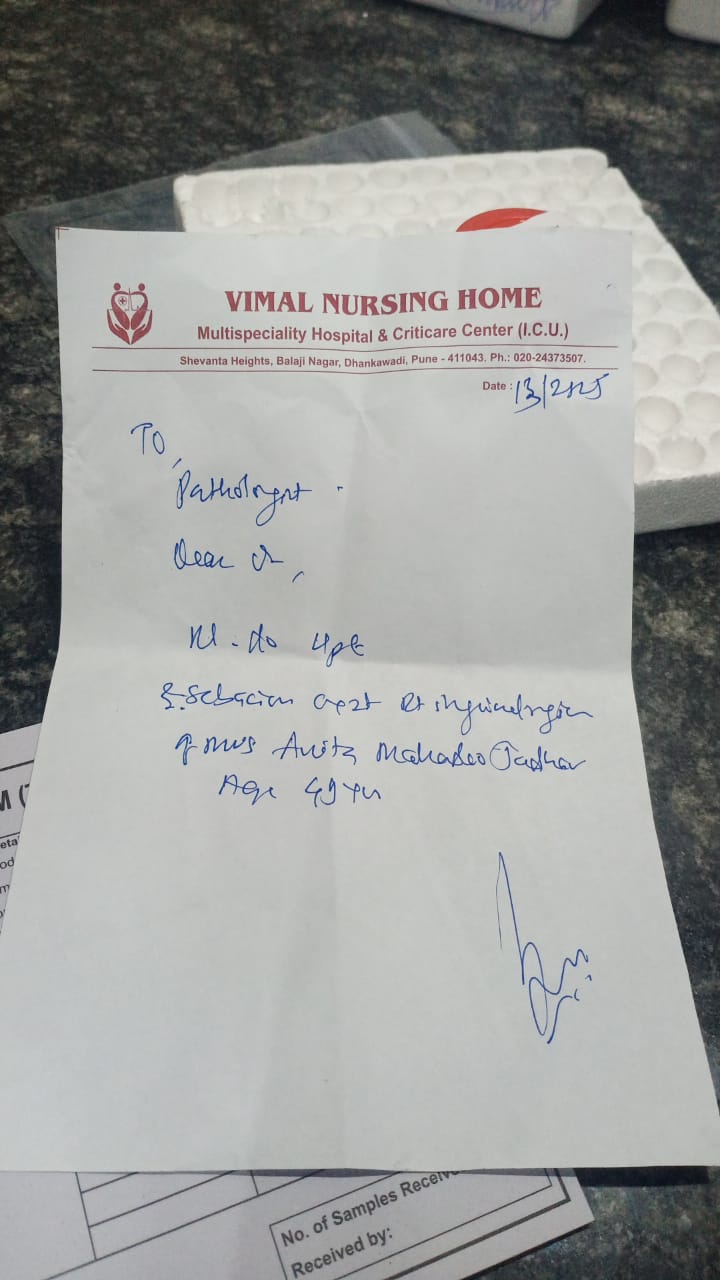 VIMAL NURSING HOME
Multispeciality Hospital & Criticare Center (I.C.U.)
Shevanta Heights, Balaji Nagar, Dhankawadi, Pune - 411043. Ph.: 020-24373507.
Date : 13/2025
TO,
Pathologist .
Dear Dr,
Kl. do HPE
Sebacian cyst Rt inguinal region
of Mrs Anita Mahadeo Jadhav
Age 49 yrs
M (
eta
od
No. of Samples Receiv
Received by: